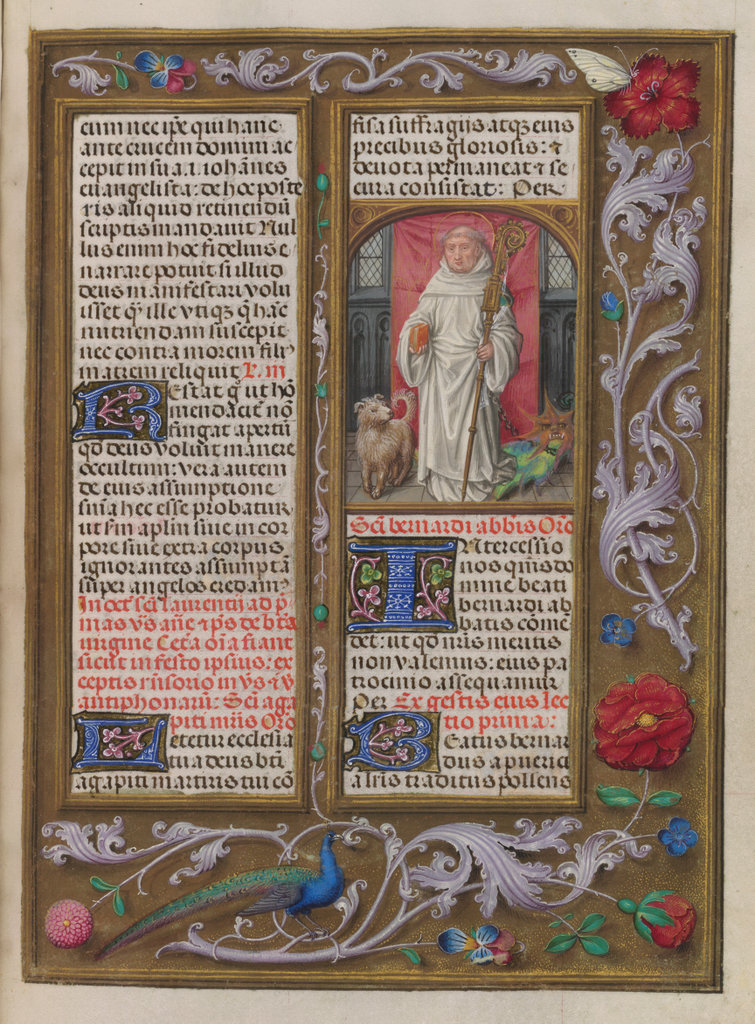 eum nec ip̄e qui hanc
ante crucem domini ac
cepit in sua .i. ioh̄anes
euangelista: de hoc poste
ris aliquid retinendū
scriptis mandauit Nul
lus enim hoc fidelius e
narrare potuit si illud
deus manifestari volu
isset q̄ ille vtiqꝫ q̄ hāc
nutriendam suscepit
nec contra morem filij
matrem reliquit L. iij
Restat g̊ ut hō
mendacit̄ nō
fingat apertū
qd deus voluit manere
occultum: vera autem
de eius assumptione
snīa hec esse probatur
ut scd̄m aplm̄ siue in cor
pore siue extra corpus
ignorantes assumptā
super angelos credam⁹
In oct̄ scī laurentij ad p̄
mas v̄s an̄e et p̄s de bt̄a
uirgine Cet̄a oīa fiant
sicut in festo ipsius: ex
ceptis rn̄sorio in v̄s et v̄
antiphonarū: Scī aga
piti mr̄is Orō
Letetur ecclesia
tua deus btī
agapiti martiris tui cō
fisa suffragijs atqꝫ eius
precibus gloriosis: ⁊
deuota permaneat ⁊ se
cura consistat: Per
Scī bernardi abbīs Orō
Intercessio
nos qm̄s do
mine beati
bernardi ab
batis cōmē
det: ut qd nr̄is meritis
non valemus: eius pa
trocinio assequamur
Per Ex gestis eius lec
tio prima:
Beatus bernar
dus a puerici
a lr̄is traditus pollens